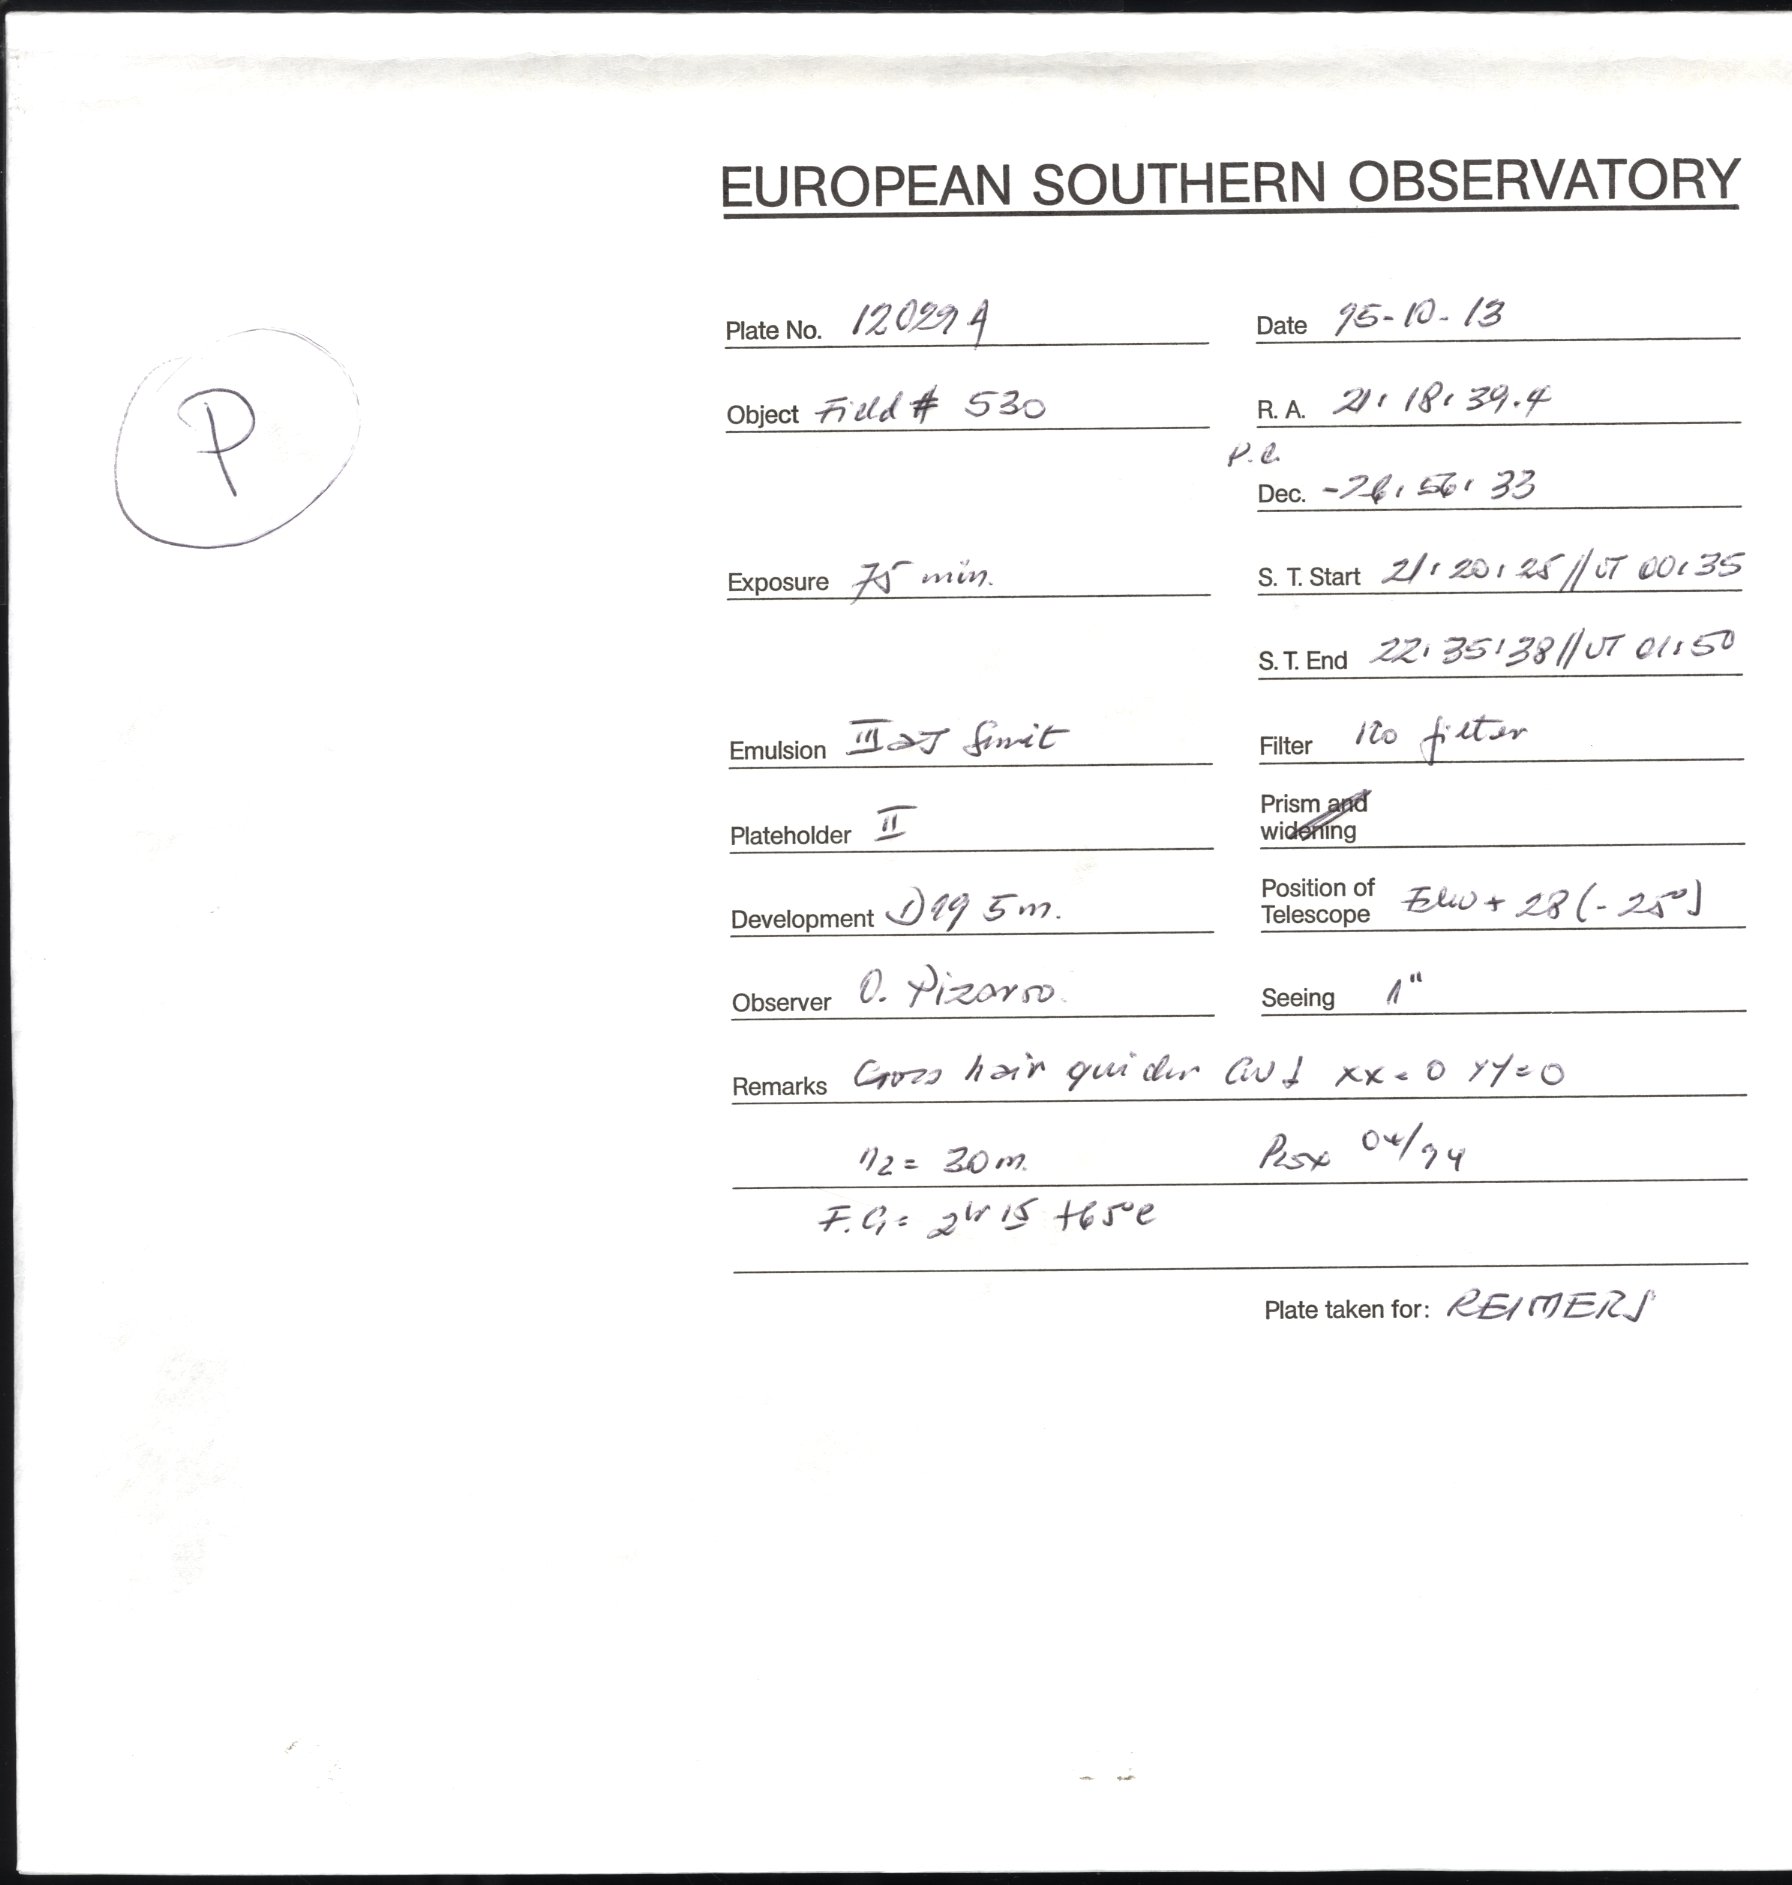 EUROPEAN SOUTHERN OBSERVATORY
Plate No. 12029A Date 95-10-13
P
Object Field # 530 R. A. 21:18:39.4
Dec. 56:33
Exposure 75 min. S. T. Start 21:20:25//UT 00:35
S. T. End 22:35:38//UT 01:50
Emulsion IIIaJ Filter No filter
Plateholder II Prism and
widening
Development D19 5m. Position of
Telescope + 28 (-25°)
Observer O. Pizarro. Seeing 1"
Remarks Cross hair guider XX=0 YY=0
N2= 30m. 04/94
F.G= 15 +65°
Plate taken for: REIMERS